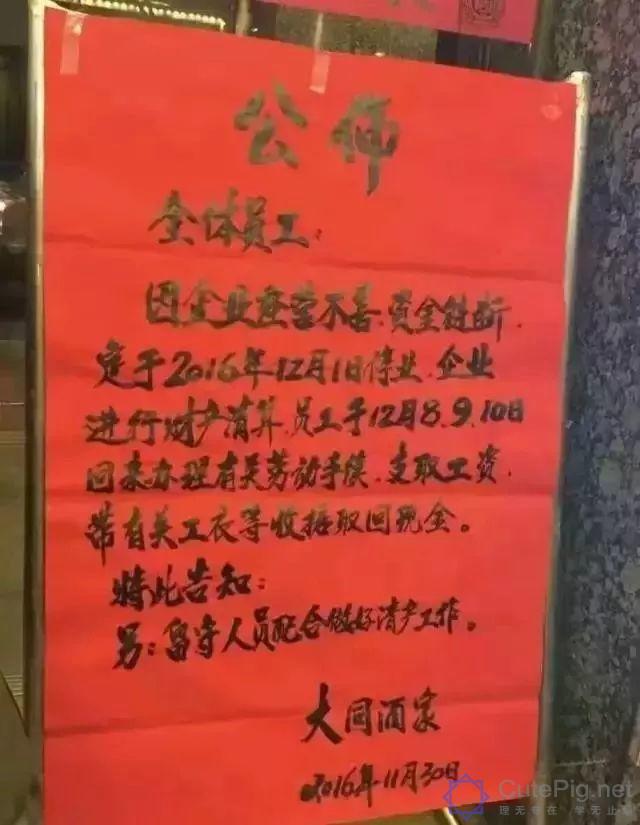 公佈
全体员工：
因企业经营不善、资金链断、
定于2016年12月1日停业、企业
进行财产清算、员工于12月8.9.10日
回来办理有关劳动手续、支取工资、
带有关工衣等收据取回现金。
特此告知：
另：留守人员配合做好清产工作。
大同酒家
2016年11月30日
CutePig.net
理无专在 学无止境